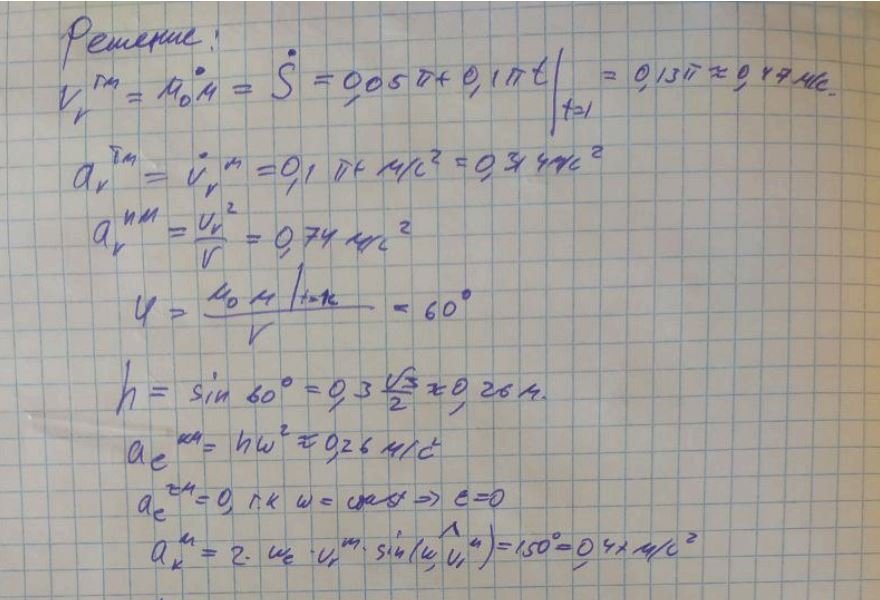 Решение:
V_r^тм = M₀M = Ṡ = 0,05π + 0,1πt|_{t=1} = 0,15π ≈ 0,47 м/с.
a_r^тм = V̇_r^м = 0,1 π м/с² = 0,314 м/с²
a_r^нм = V_r²/r = 0,74 м/с²
φ = M₀M|_{t=1}/r = 60°
h = sin 60° = 0,3 √3/2 ≈ 0,26 м.
a_e^нм = hω² ≈ 0,26 м/с²
a_e^τм = 0, т.к ω = const ⇒ ε=0
a_к^м = 2·ω_e·V_r^м·sin(ω,^V_r^м) = 150° = 0,47 м/с²